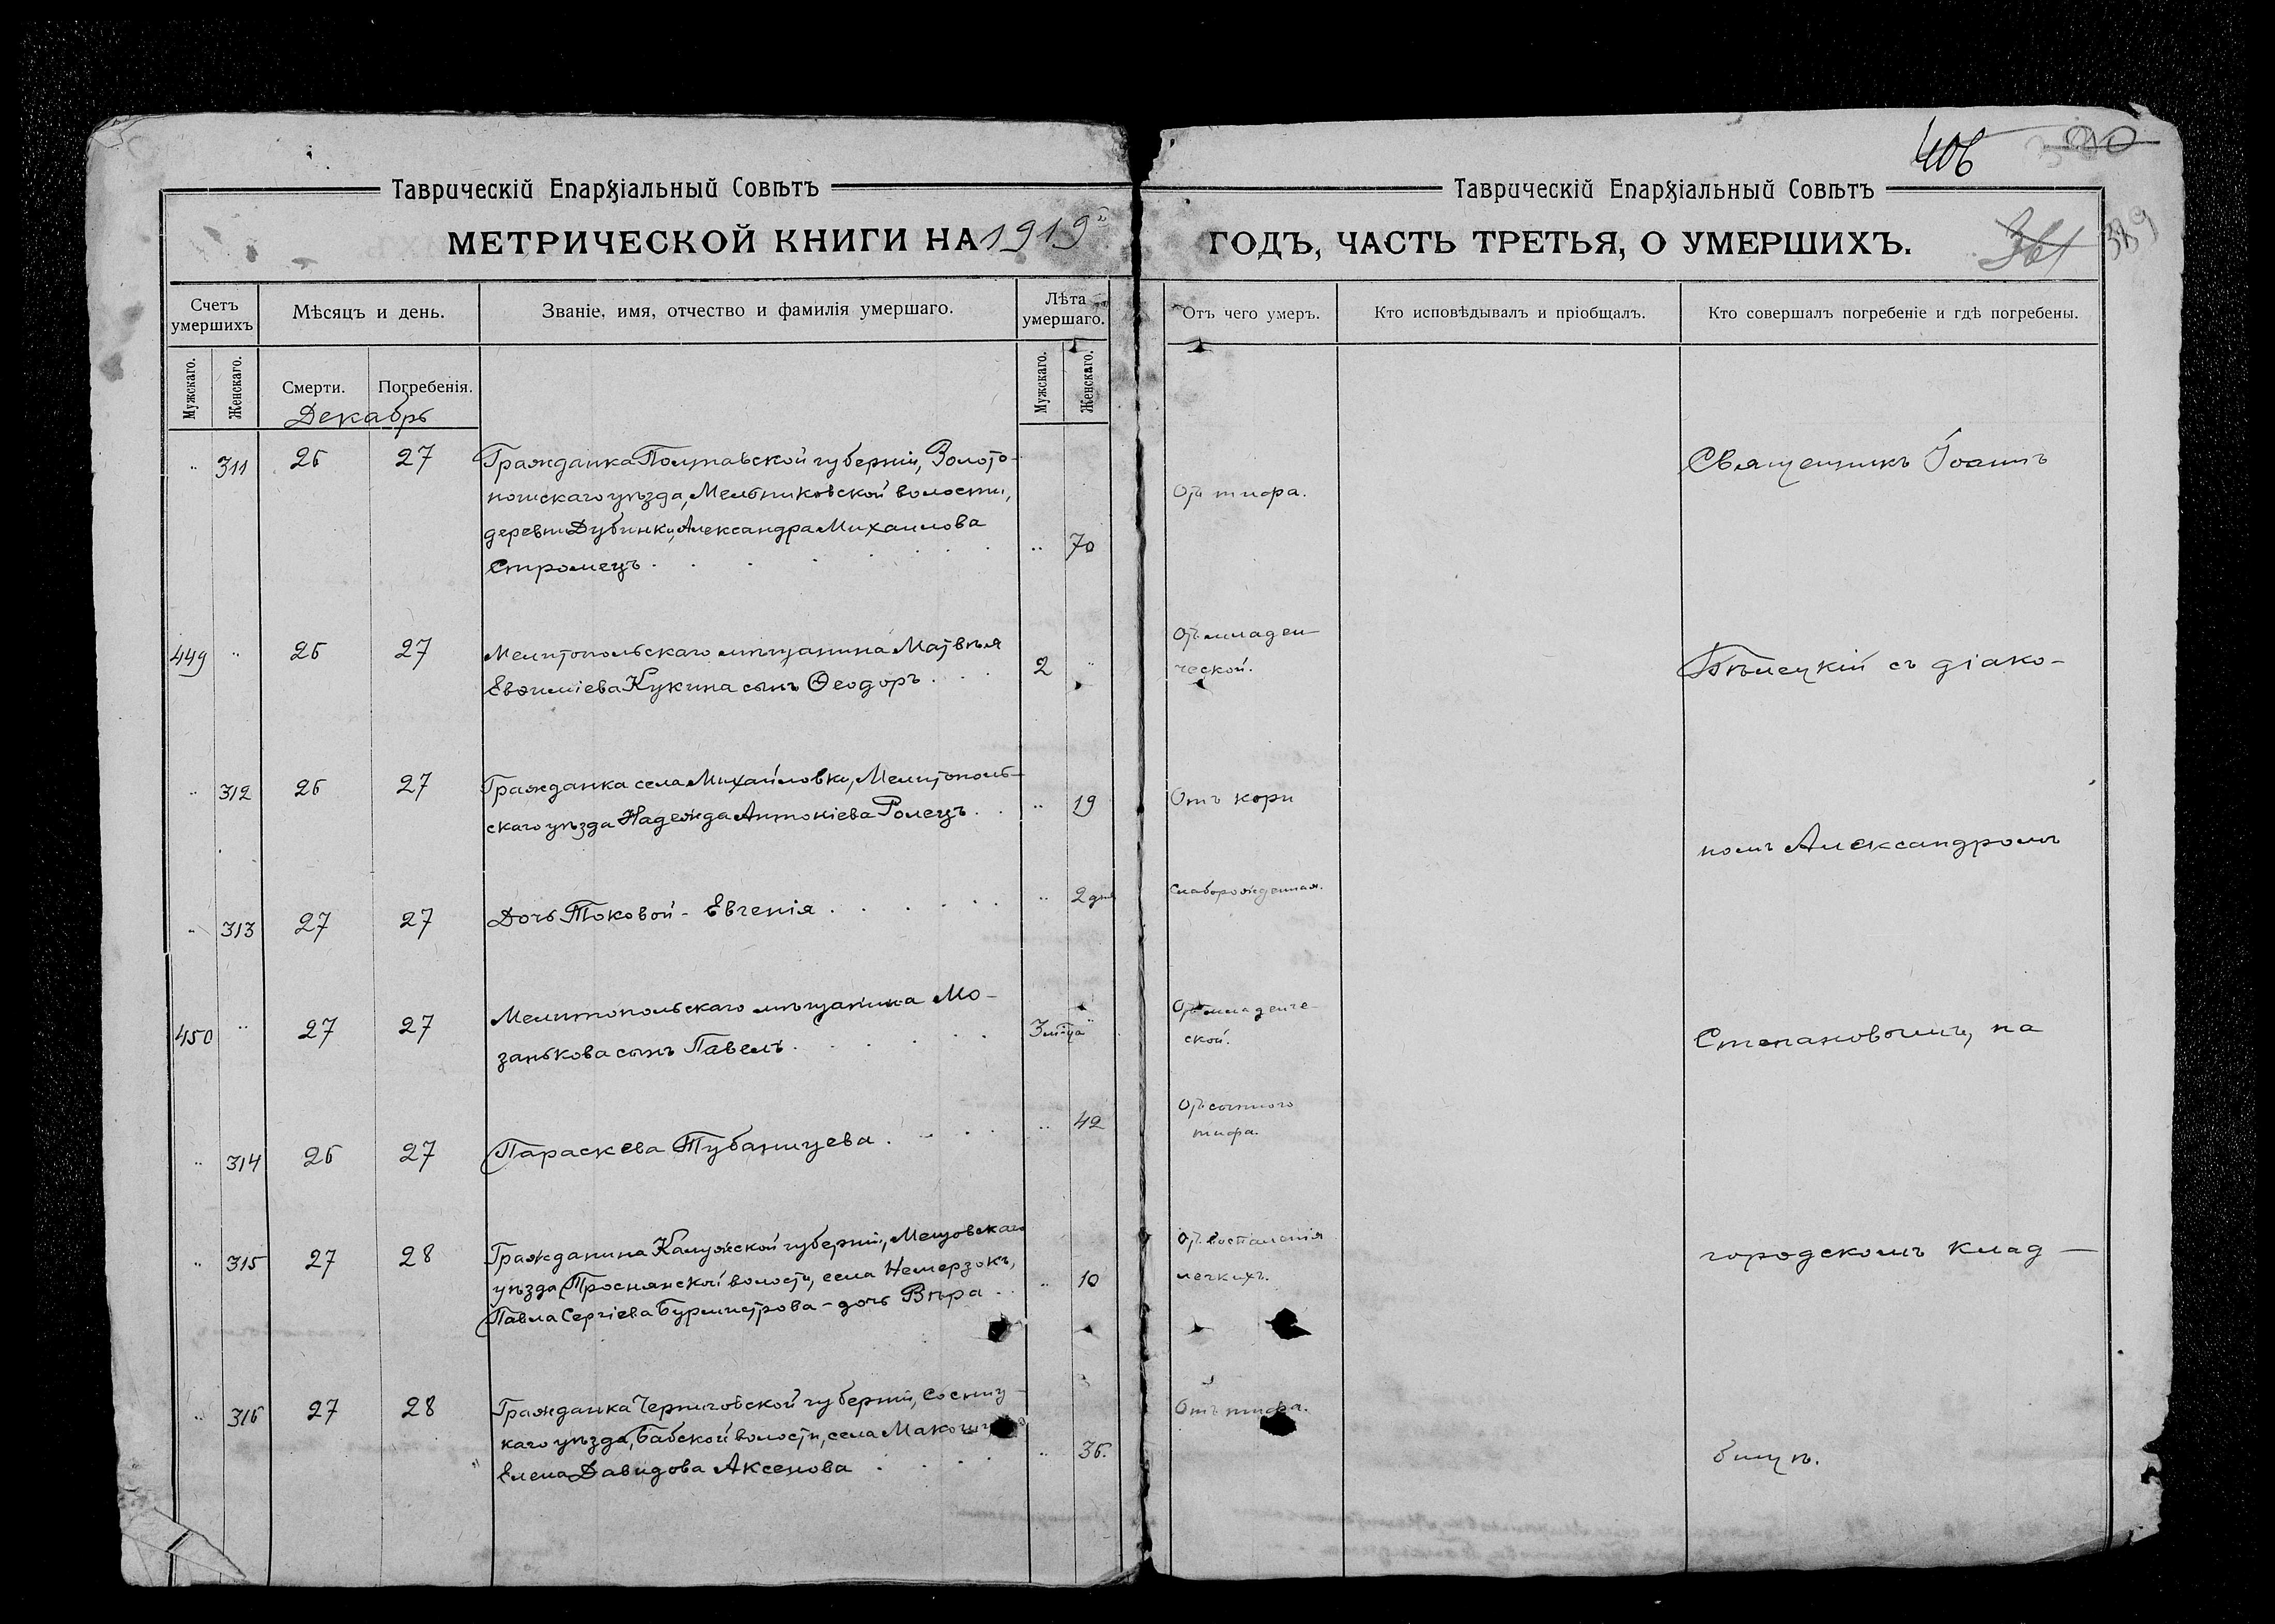 406 380
Таврическій Епархіальный Совѣтъ
Таврическій Епархіальный Совѣтъ
МЕТРИЧЕСКОЙ КНИГИ НА 1919й
ГОДЪ, ЧАСТЬ ТРЕТЬЯ, О УМЕРШИХЪ.
361 389
Счетъ умершихъ
Мѣсяцъ и день.
Званіе, имя, отчество и фамилія умершаго.
Лѣта умершаго.
Отъ чего умеръ.
Кто исповѣдывалъ и пріобщалъ.
Кто совершалъ погребеніе и гдѣ погребены.
Мужскаго.
Женскаго.
Смерти.
Погребенія.
Мужскаго.
Женскаго.
Декабрь
" 311 26 27
Гражданка Полтавской губерніи, Золото-
ношскаго уѣзда, Мельниковской волости,
деревни Дубинки, Александра Михаилова
Стромецъ . . . . . . . " 70
Отъ тифа.
Священникъ Іоаннъ
449 " 26 27
Мелитопольскаго мѣщанина Матвѣя
Евѳиміева Кукина сынъ Ѳеодоръ . . . 2 "
Отъ младен-
ческой.
Бѣлецкій съ діако-
" 312 26 27
Гражданка села Михайловки, Мелитополь-
скаго уѣзда Надежда Антоніева Ромецъ . . " 19
Отъ кори
номъ Александромъ
" 313 27 27
Дочь Токовой - Евгенія . . . . . . " 2 дня
Слаборожденная.
450 " 27 27
Мелитопольскаго мѣщанина Мо-
занькова сынъ Павелъ . . . . . 3 мѣсяца "
Отъ младенче-
ской.
Степановымъ, на
" 314 26 27
Параскева Тубанцева . . . . " 42
Отъ сыпного
тифа.
" 315 27 28
Гражданина Калужской губерніи, Мещовскаго
уѣзда, волости, села Немерзокъ,
Павла Сергіева Бурмистрова - дочь Вѣра . . " 10
Отъ воспаленія
легкихъ.
городскомъ клад-
" 316 27 28
Гражданка Черниговской губерніи, Сосниц-
каго уѣзда, Бабской волости, села
Елена Давидова Аксенова . . . . " 36.
Отъ тифа.
бищѣ.